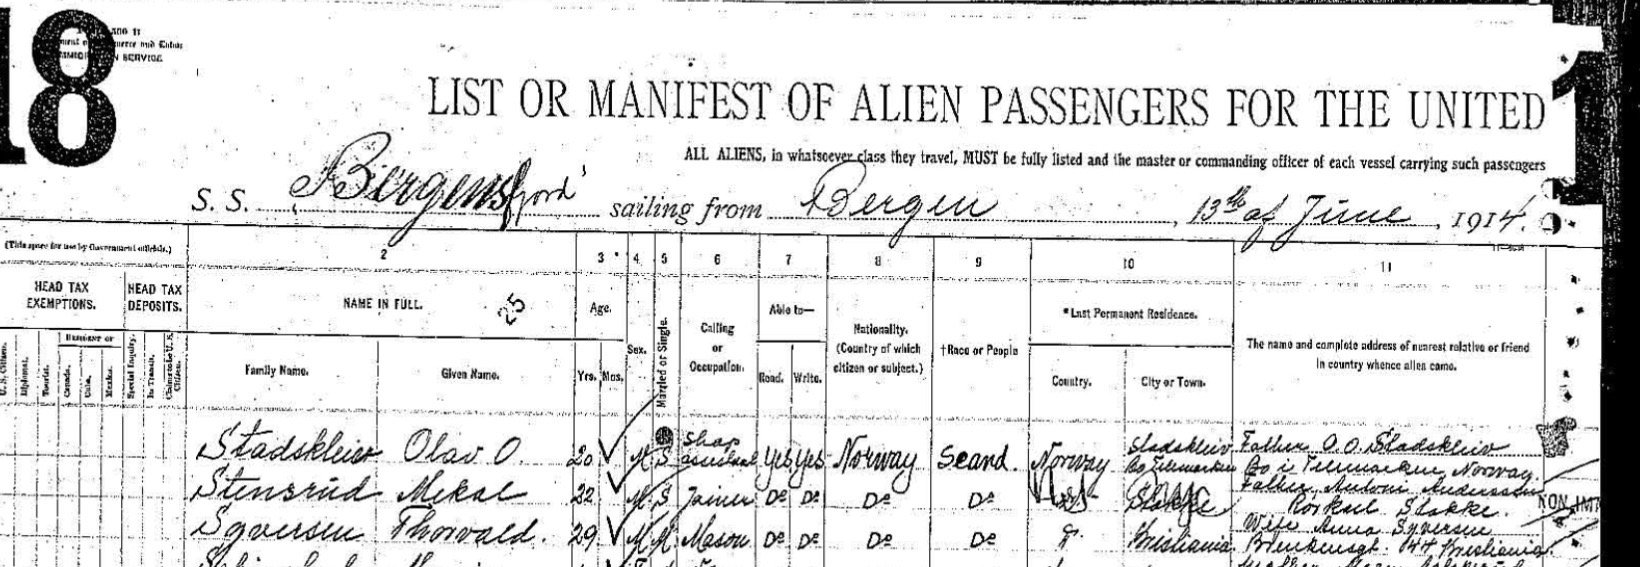 18
SERVICE
LIST OR MANIFEST OF ALIEN PASSENGERS FOR THE UNITED
1
ALL ALIENS, in whatsoever class they travel, MUST be fully listed and the master or commanding officer of each vessel carrying such passengers
S. S. Bergensfjord sailing from Bergen, 13th of June, 1914.
(This space for use by Government officials.)
2 3 4 5 6 7 8 9 10 11
HEAD TAX EXEMPTIONS.
HEAD TAX DEPOSITS.
NAME IN FULL.
25
Age.
Sex.
Married or Single.
Calling or Occupation.
Able to—
Nationality. (Country of which citizen or subject.)
†Race or People
*Last Permanent Residence.
The name and complete address of nearest relative or friend in country whence alien came.
U.S. Citizen. Diplomat. Tourist. Canada. Cuba. Mexico. Special Inquiry. In Transit.
Family Name. Given Name. Yrs. Mos. Read. Write. Country. City or Town.
Stadskleiv Olav O. 20 M S Shop Yes Yes Norway Scand. Norway Stadskleiv Father O.O. Stadskleiv
Bo i Telemarken, Norway.
Stensrud Mikal 22 M S Joiner Do Do Do Do Stokke Father, Antoni Anderssen
Stokke.
NON IM
Syversen Thorvald. 29 M M Mason Do Do Do Do Kristiania Wife Anna Syversen
44, Kristiania.